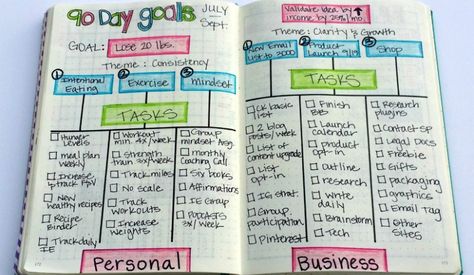 90 Day goals
JULY
-
Sept.
GOAL: Lose 20 lbs.
Theme: Consistency
① Intentional Eating
② Exercise
③ Mindset
TASKS
Hunger
Levels
meal plan
Weekly
Increase
& track F&V
New
healthy recipes
Recipe
Binder
Track daily
IE
Workout
min. 4x/week
Strength
train 4x/week
Track miles
No scale
Track
workouts
Increase
weights
Group
mindset Assg.
monthly
Coaching Call
Six books
Affirmations
IE Group
PODCASTS
3x/week
Personal
Validate idea by
income by 25%/mo.
Theme: Clarity & Growth
① New Email
List to 2000
② Product
Launch 9/19
③ Shop
TASKS
CK basic
list
2 blog
posts/week
List of
content upgrade
List
opt-in
IG strat.
Group.
participation
Pinterest
Finish
BIB
Launch
calendar
product
opt-in
Outline
research
write
daily
Brainstorm
Tech
Research
plugins
Contact SP
Legal Docs
Freebie
Gifts
packaging
graphics
Email Tag
Other
Sites
Business